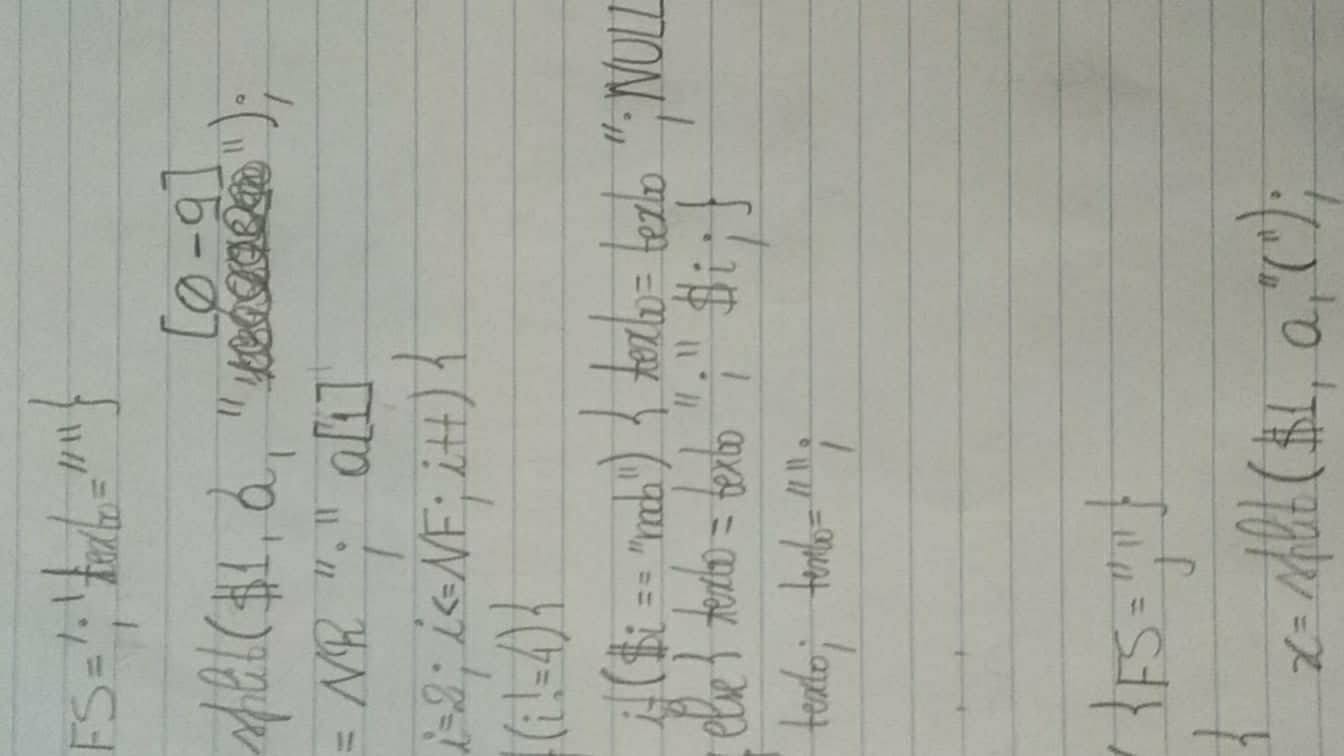 FS=';' texto=""}
[0-9]
split($1, a, "");
= NR ";" a[1]
i=2; i<=NF; i++) {
(i!=4){
if($i == "nada") { texto= texto ";NULL
else { texto = texto ";" $i; }
texto; texto="";
{FS=","}
{
x= split($1, a,"(");